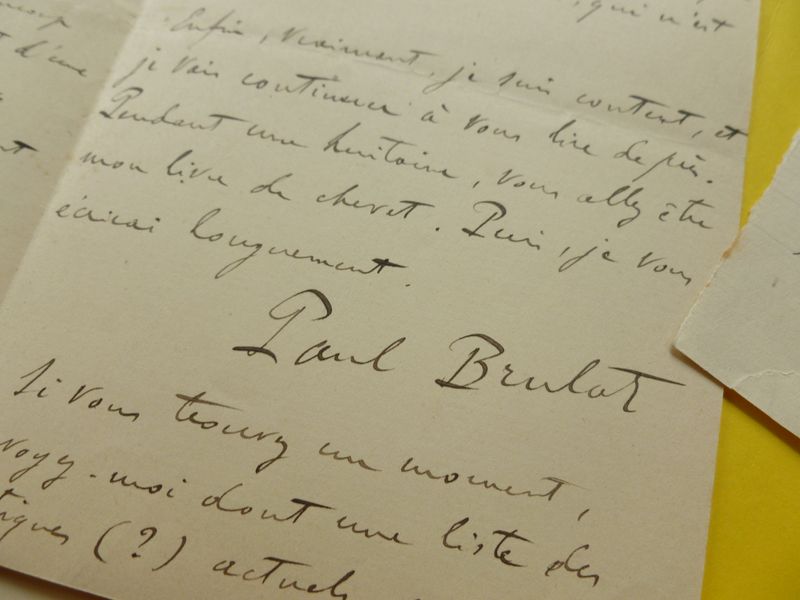 , qui n'est
Enfin, vraiment, je suis content, et
je vais continuer à vous lire de près.
Pendant une huitaine, vous allez être
mon livre de chevet. Puis, je vous
écrirai longuement.
Paul Brulat
Si vous trouvez un moment,
moi dont une liste des
(?) actuels
d'une